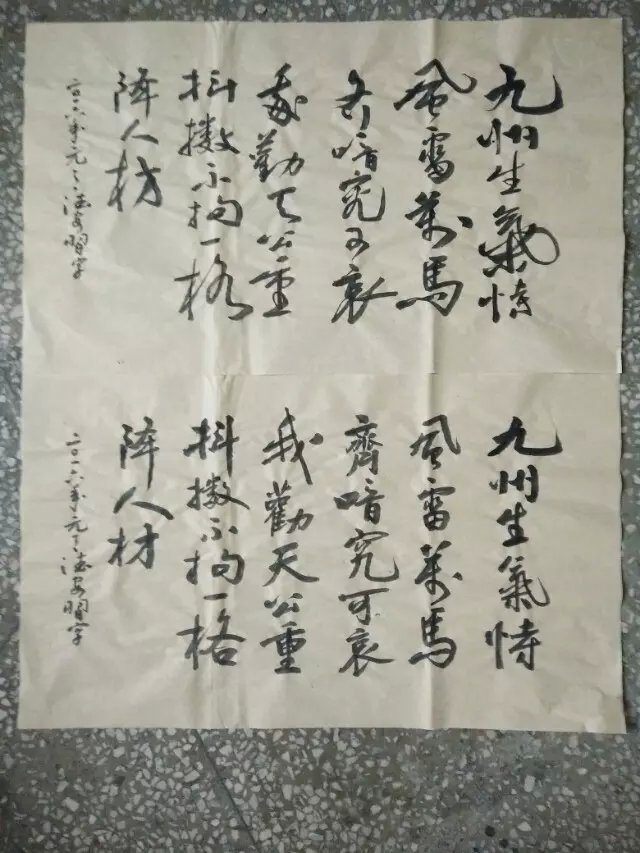 九州生氣恃
風雷萬馬
齐喑究可哀
我勸天公重
抖擻不拘一格
降人材
二〇一六年元
習字
九州生氣恃
風雷萬馬
齊喑究可哀
我勸天公重
抖擻不拘一格
降人材
二〇一六年元
習字